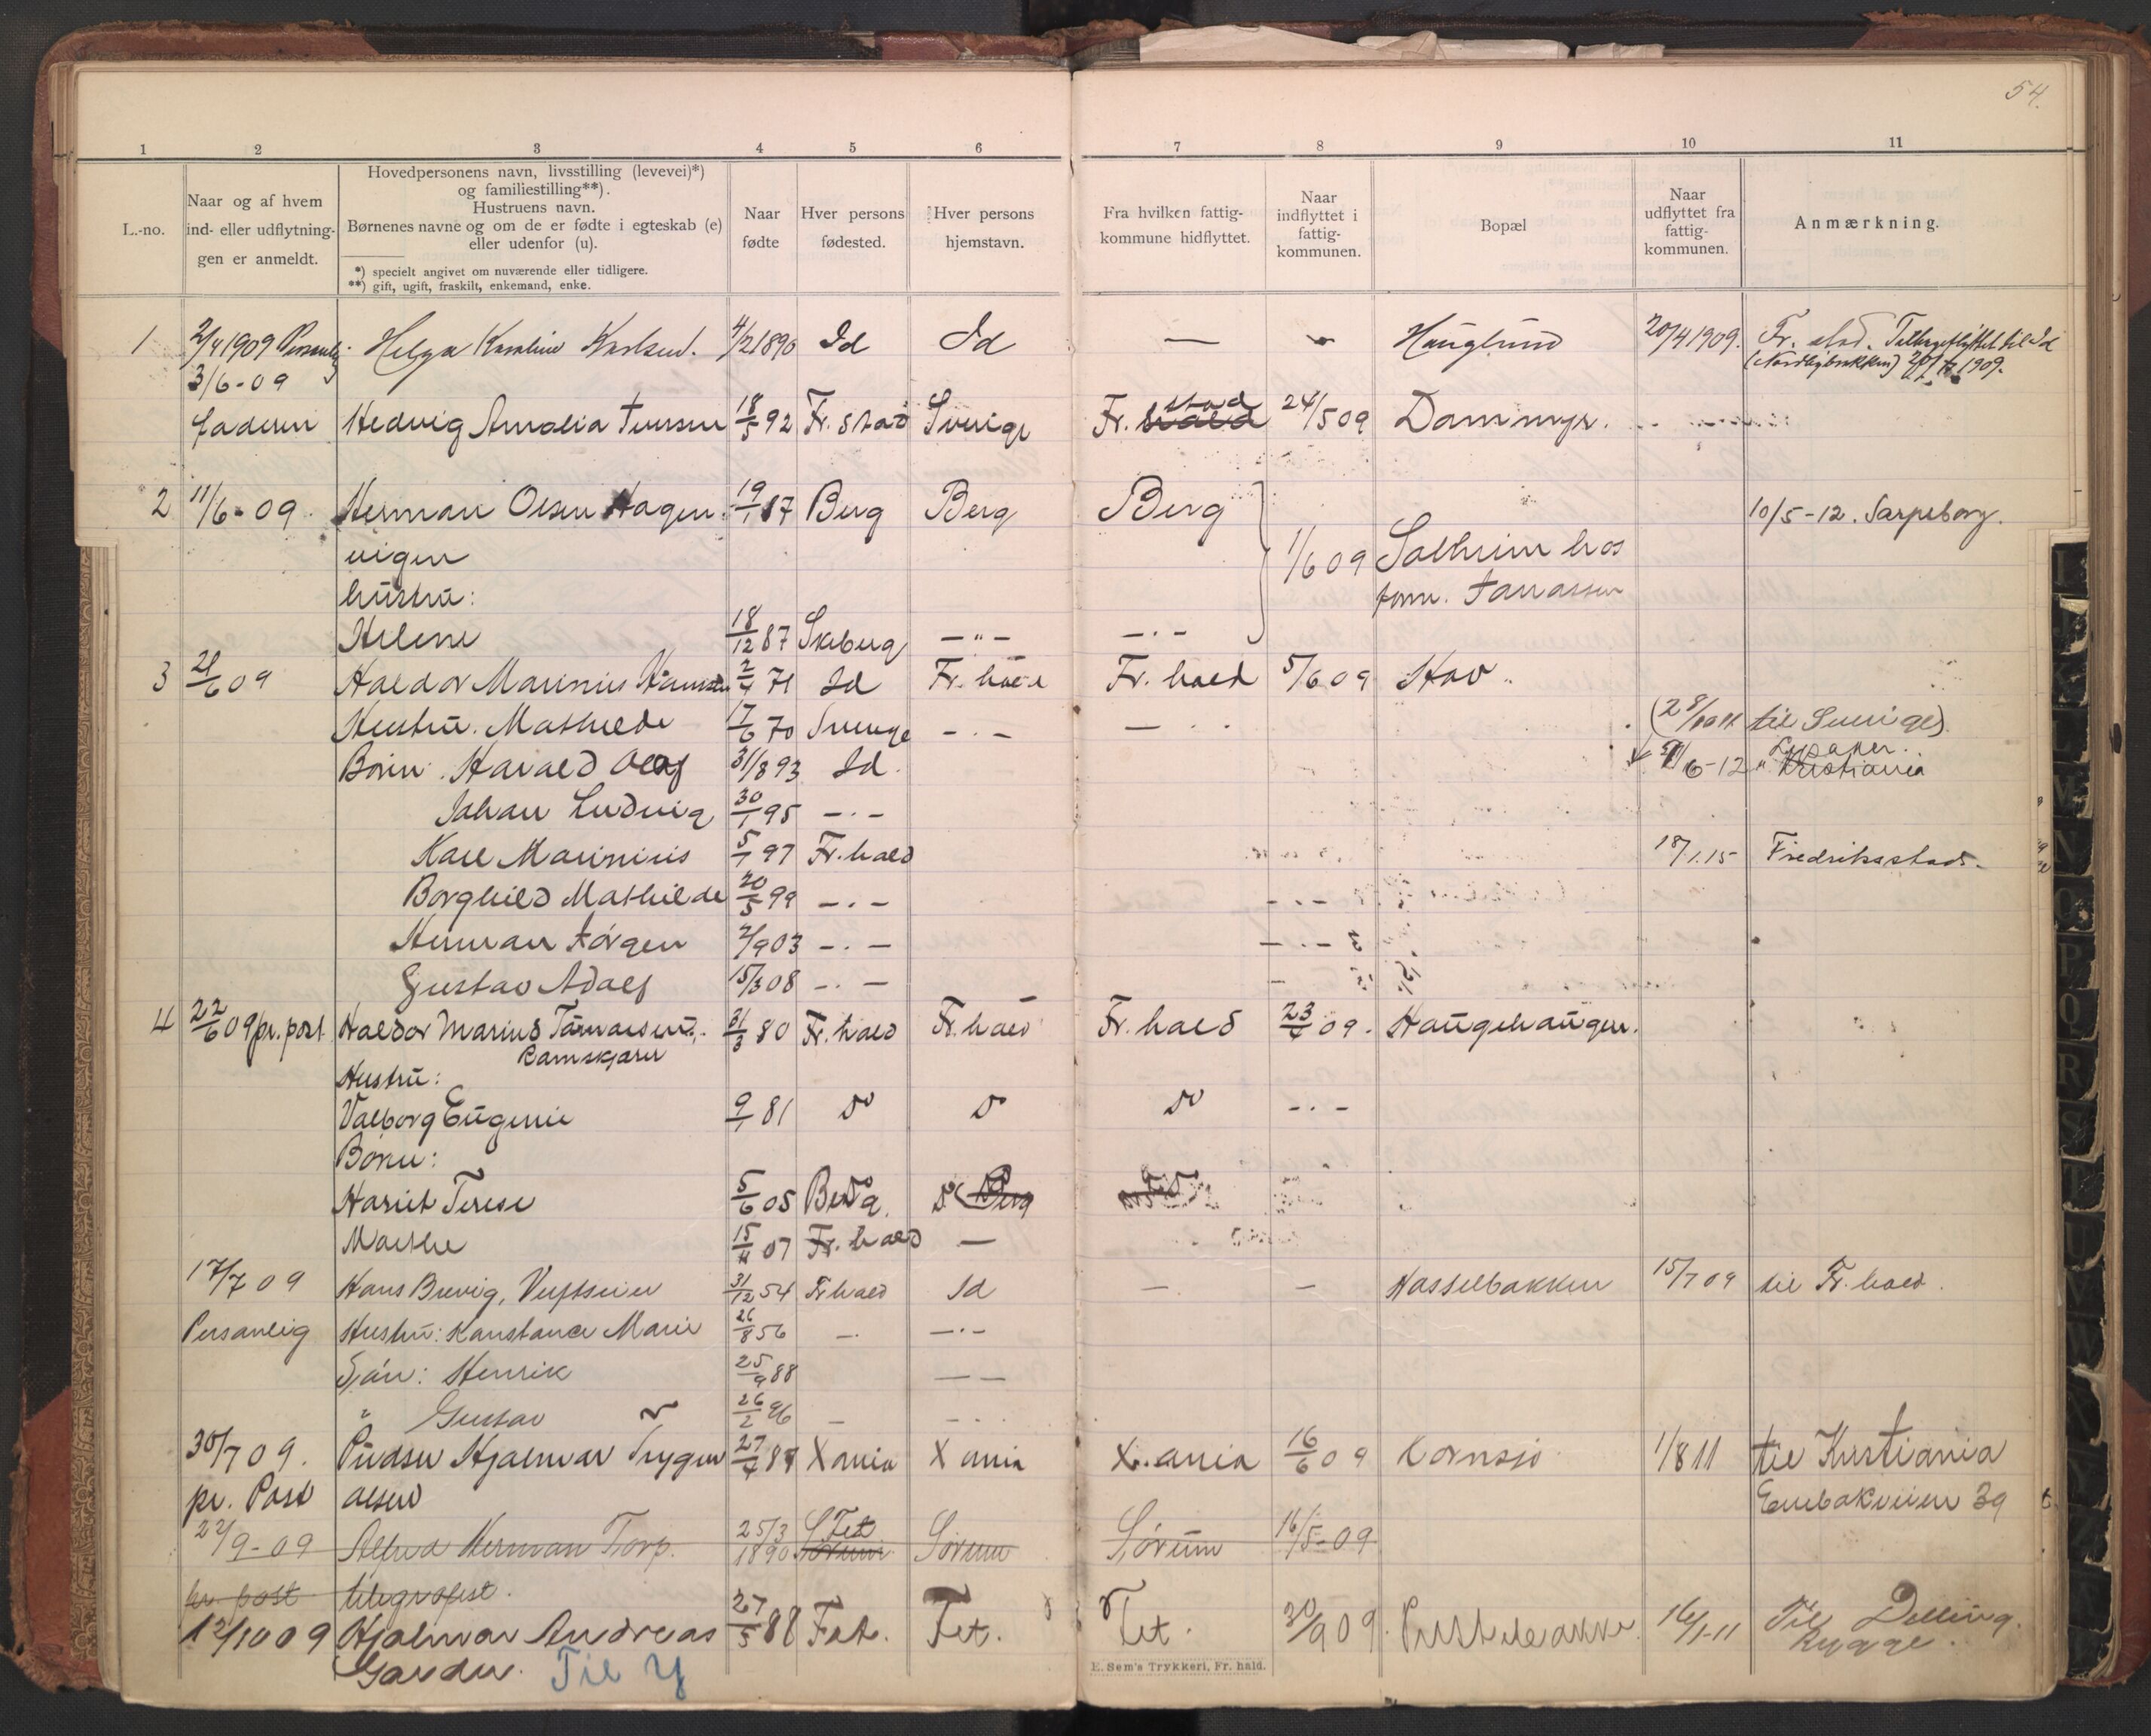 54.
1 2 3 4 5 6 7 8 9 10 11
L.-no.
Naar og af hvem
ind- eller udflytnin-
gen er anmeldt.
Hovedpersonens navn, livsstilling (levevei)*)
og familiestilling**).
Hustruens navn.
Børnenes navne og om de er fødte i egteskab (e)
eller udenfor (u).
*) specielt angivet om nuværende eller tidligere.
**) gift, ugift, fraskilt, enkemand, enke.
Naar
fødte
Hver persons
fødested.
Hver persons
hjemstavn.
Fra hvilken fattig-
kommune hidflyttet.
Naar
indflyttet i
fattig-
kommunen.
Bopæl
Naar
udflyttet fra
fattig-
kommunen.
Anmærkning.
1 2/4 1909 Personlig. Helga Karoline Karlsen. 4/2 1890 Id Id — Hauglund 20/4 1909. Fr. stad. Tilbageflyttet til Id
3/6-09 1909.
faderen Hedvig Amalia Iversen 18/5 92 Fr. stad Sverige Fr. hald stad 24/5 09 Dammyr.
2 11/6-09. Herman Olsen Hagen 19/1 87 Berg Berg Berg 10/5-12. Sarpsborg.
vigen 1/6 09 Solheim hos
hustru: form.
Helene 18/12 87 Skeberg —"— —"—
3 21/6 09 Haldor Marinius Hansen 2/4 71 Id Fr. hald Fr. hald 5/6 09 Hov
Hustru. Mathilde 17/6 70 Sverige —"— — (28/10 11 til Sverige).
Børn: Harald Olaf 31/8 93 Id. 6-12 Lysaker. " Kristiania
Johan Ludvig 30/1 95 —"—
Karl Marinius 5/1 97 Fr. hald 18/1.15 Fredriksstad.
Borghild Mathilde 20/5 99 —"—
Herman Jørgen 2/9 03 —"—
Gustav Adolf 15/3 08 —"—
4 22/6 09 pr. post Haldor Marius 31/3 80 Fr. hald Fr. hald Fr. hald 23/4 09. Haugehaugen.
Ramskjær
Hustru:
Valborg Eugenie 9/1 81 Do Do Do —"—
Børn:
Hariet Terese 5/6 05 Berg. Do Berg
Marthe 15/11 07 Fr. hald —
17/7 09 Hans Brevig, 31/12 54 Fr hald Id — — Hasselbakken 15/7 09 til Fr. hald.
Personlig Hustru: Konstance Marie 26/8 56 — —"—
Søn: Henrik 25/9 88 — —
" Gustav 26/2 96 —
30/7 09. Hjalmar Trygve 27/4 87 Xania Xania X.ania 16/6 09 Kornsjø 1/8 11 til Kristiania
pr. Post Olsen Enebakveien 39
22/9-09 Alfred Herman Torp. 25/3 1890 Sørum Fet Sørum Sørum 16/5-09
pr. post telegrafist.
12/10 09 Hjalmar Andreas 27/5 88 Fet. Fet. Fet. 30/9 09. 16/1-11 Til Delling.
Garder. Til Y Rygge.
E. Sem's Trykkeri, Fr. hald.